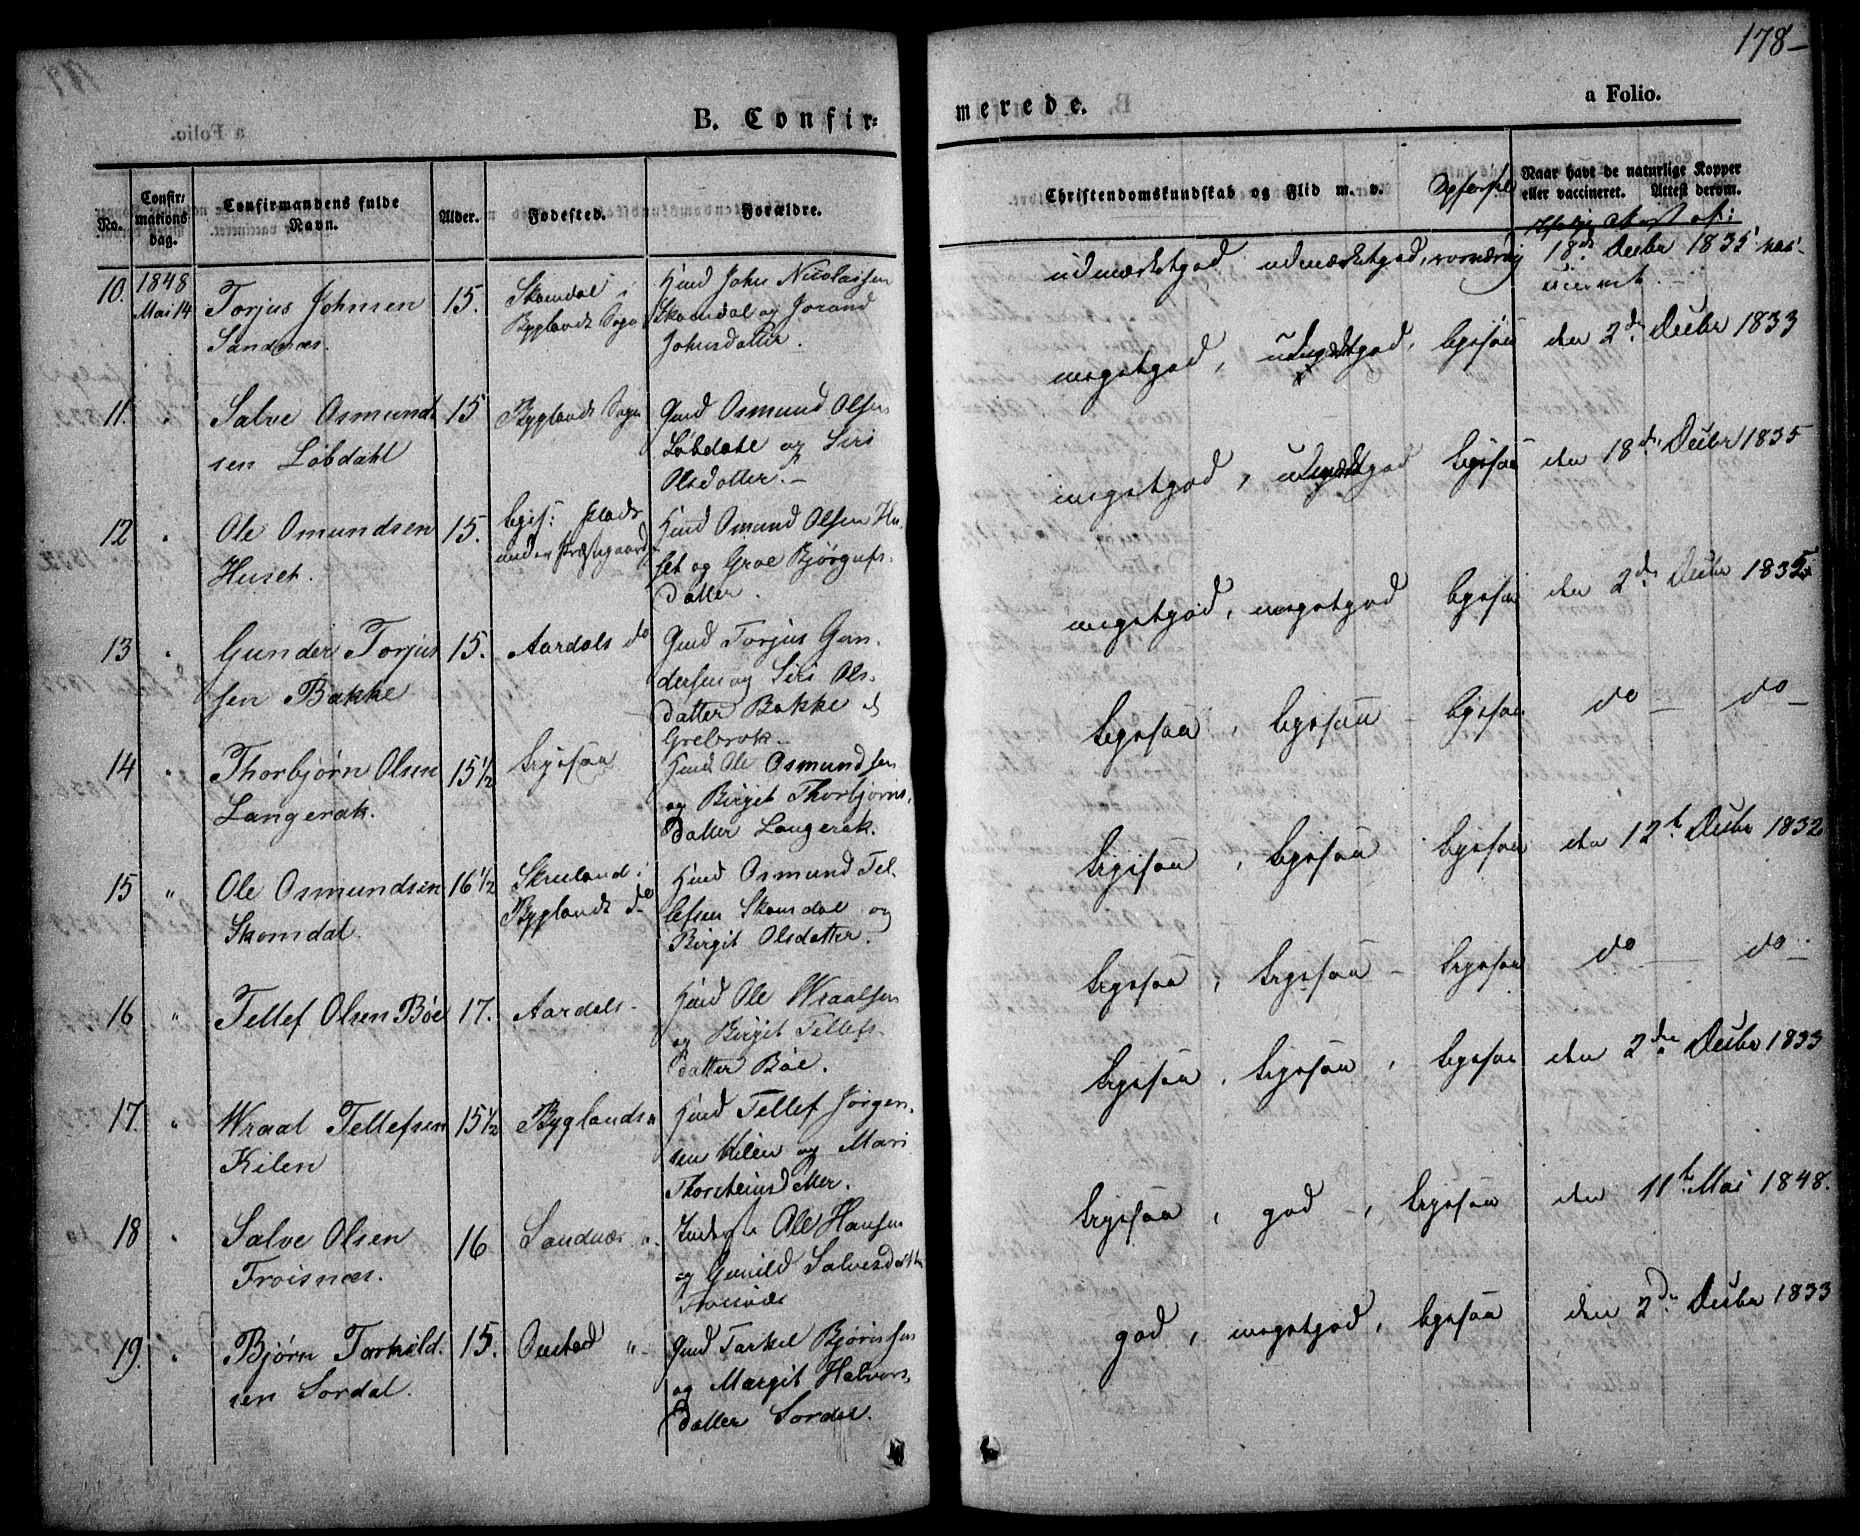 178-
B. Confir-
merede.
a Folio.
No.
Confir-
mations
dag.
Confirmandens fulde
Navn.
Alder.
Fødested.
Forældre.
Christendomskundskab og Flid m. v.
Opførsel
Naar havt de naturlige Kopper
eller vaccineret. Attest derom.
10.
1848
Mai 14
Torjus Johnsen
Sandnæs.
15.
Skomdal i
Byglands Sogn
Hmd John Nicolaisen
Skomdal og Jorand
Johnsdatter.
udmærketgod udmærketgod,
18de Decbr 1835 vac-
cineret.
11.
Salve Osmund
sen Löbdahl
15
Byglands Sogn
Gmd Osmund Olsen
Löbdahl og Siri
Olsdatter.-
megetgod,
ligesaa
den 2den Decbr 1833
12
Ole Omundsen
Huset.
15.
ligs: Plads
under Præstegaard
Hmd Omund Olsen Hu-
set og Groe Bjørgufs-
datter.
megetgod,
ligesaa
den 18de Decbr 1835
13
Gunder Torjus
sen Bakke
15.
Aardals do
Gmd Torjus Gun-
dersen og Siri Ols-
datter Bakke
megetgod, megetgod
ligesaa
den 2den Decbr 1835
14
Thorbjørn Olsen
Langerak.
15 1/2
ligesaa
Hmd Ole Osmundsen
og Birgit Thorbjørns-
datter Langerak.
ligesaa, ligesaa - ligesaa
do - do -
15
"
Ole Osmundsen
Skomdal.
16 1/2
Skreland i
Byglands do
Hmd Osmund Tel-
lefsen Skomdal og
Birgit Olsdatter.
ligesaa, ligesaa ligesaa
den 12te Decbr 1832
16
"
Tellef Olsen Bøe
17.
Aardals -
Hmd Ole Wraalsen
og Birgit Tellefs-
datter Bøe.
ligesaa, ligesaa - ligesaa
do - do -
17.
"
Wraal Tellefsen
Kilen
15 1/2
Byglands "
Hmd Tellef Jørgen-
sen Kilen og Mari
Thorsteinsdatter.
ligesaa, ligesaa, ligesaa
den 2den Decbr 1833
18
Salve Olsen
Froisnæs.
16
Sandnæs ".
Ole Hansen
og Gunild Salvesdatter
Froisnæs
ligesaa, god -, ligesaa
den 11te Mai 1848.
19.
Bjørn Torkild-
sen Sordal.
15.
Onstad "
Gmd Tarkel Bjørnsen
og Margit Halvors-
datter Sordal.
god, megetgod, ligesaa
den 2den Decbr 1833